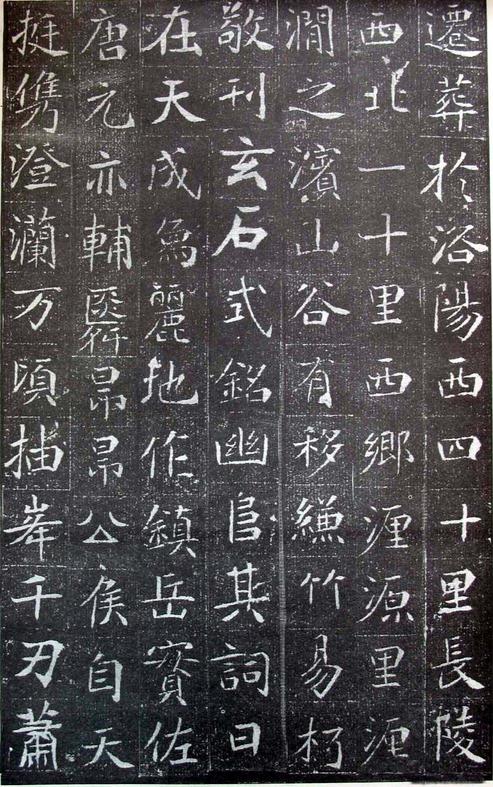 遷葬於洛陽西四十里長陵
西北一十里西鄉瀍源里瀍
澗之濱山谷有移縑竹易朽
敬刊玄石式銘幽㠯其詞曰
在天成象麗地作鎮岳賓佐
唐元亦輔醫衍昂昂公侯自天
挺儁澄瀾万頃抽峯千刃蕭